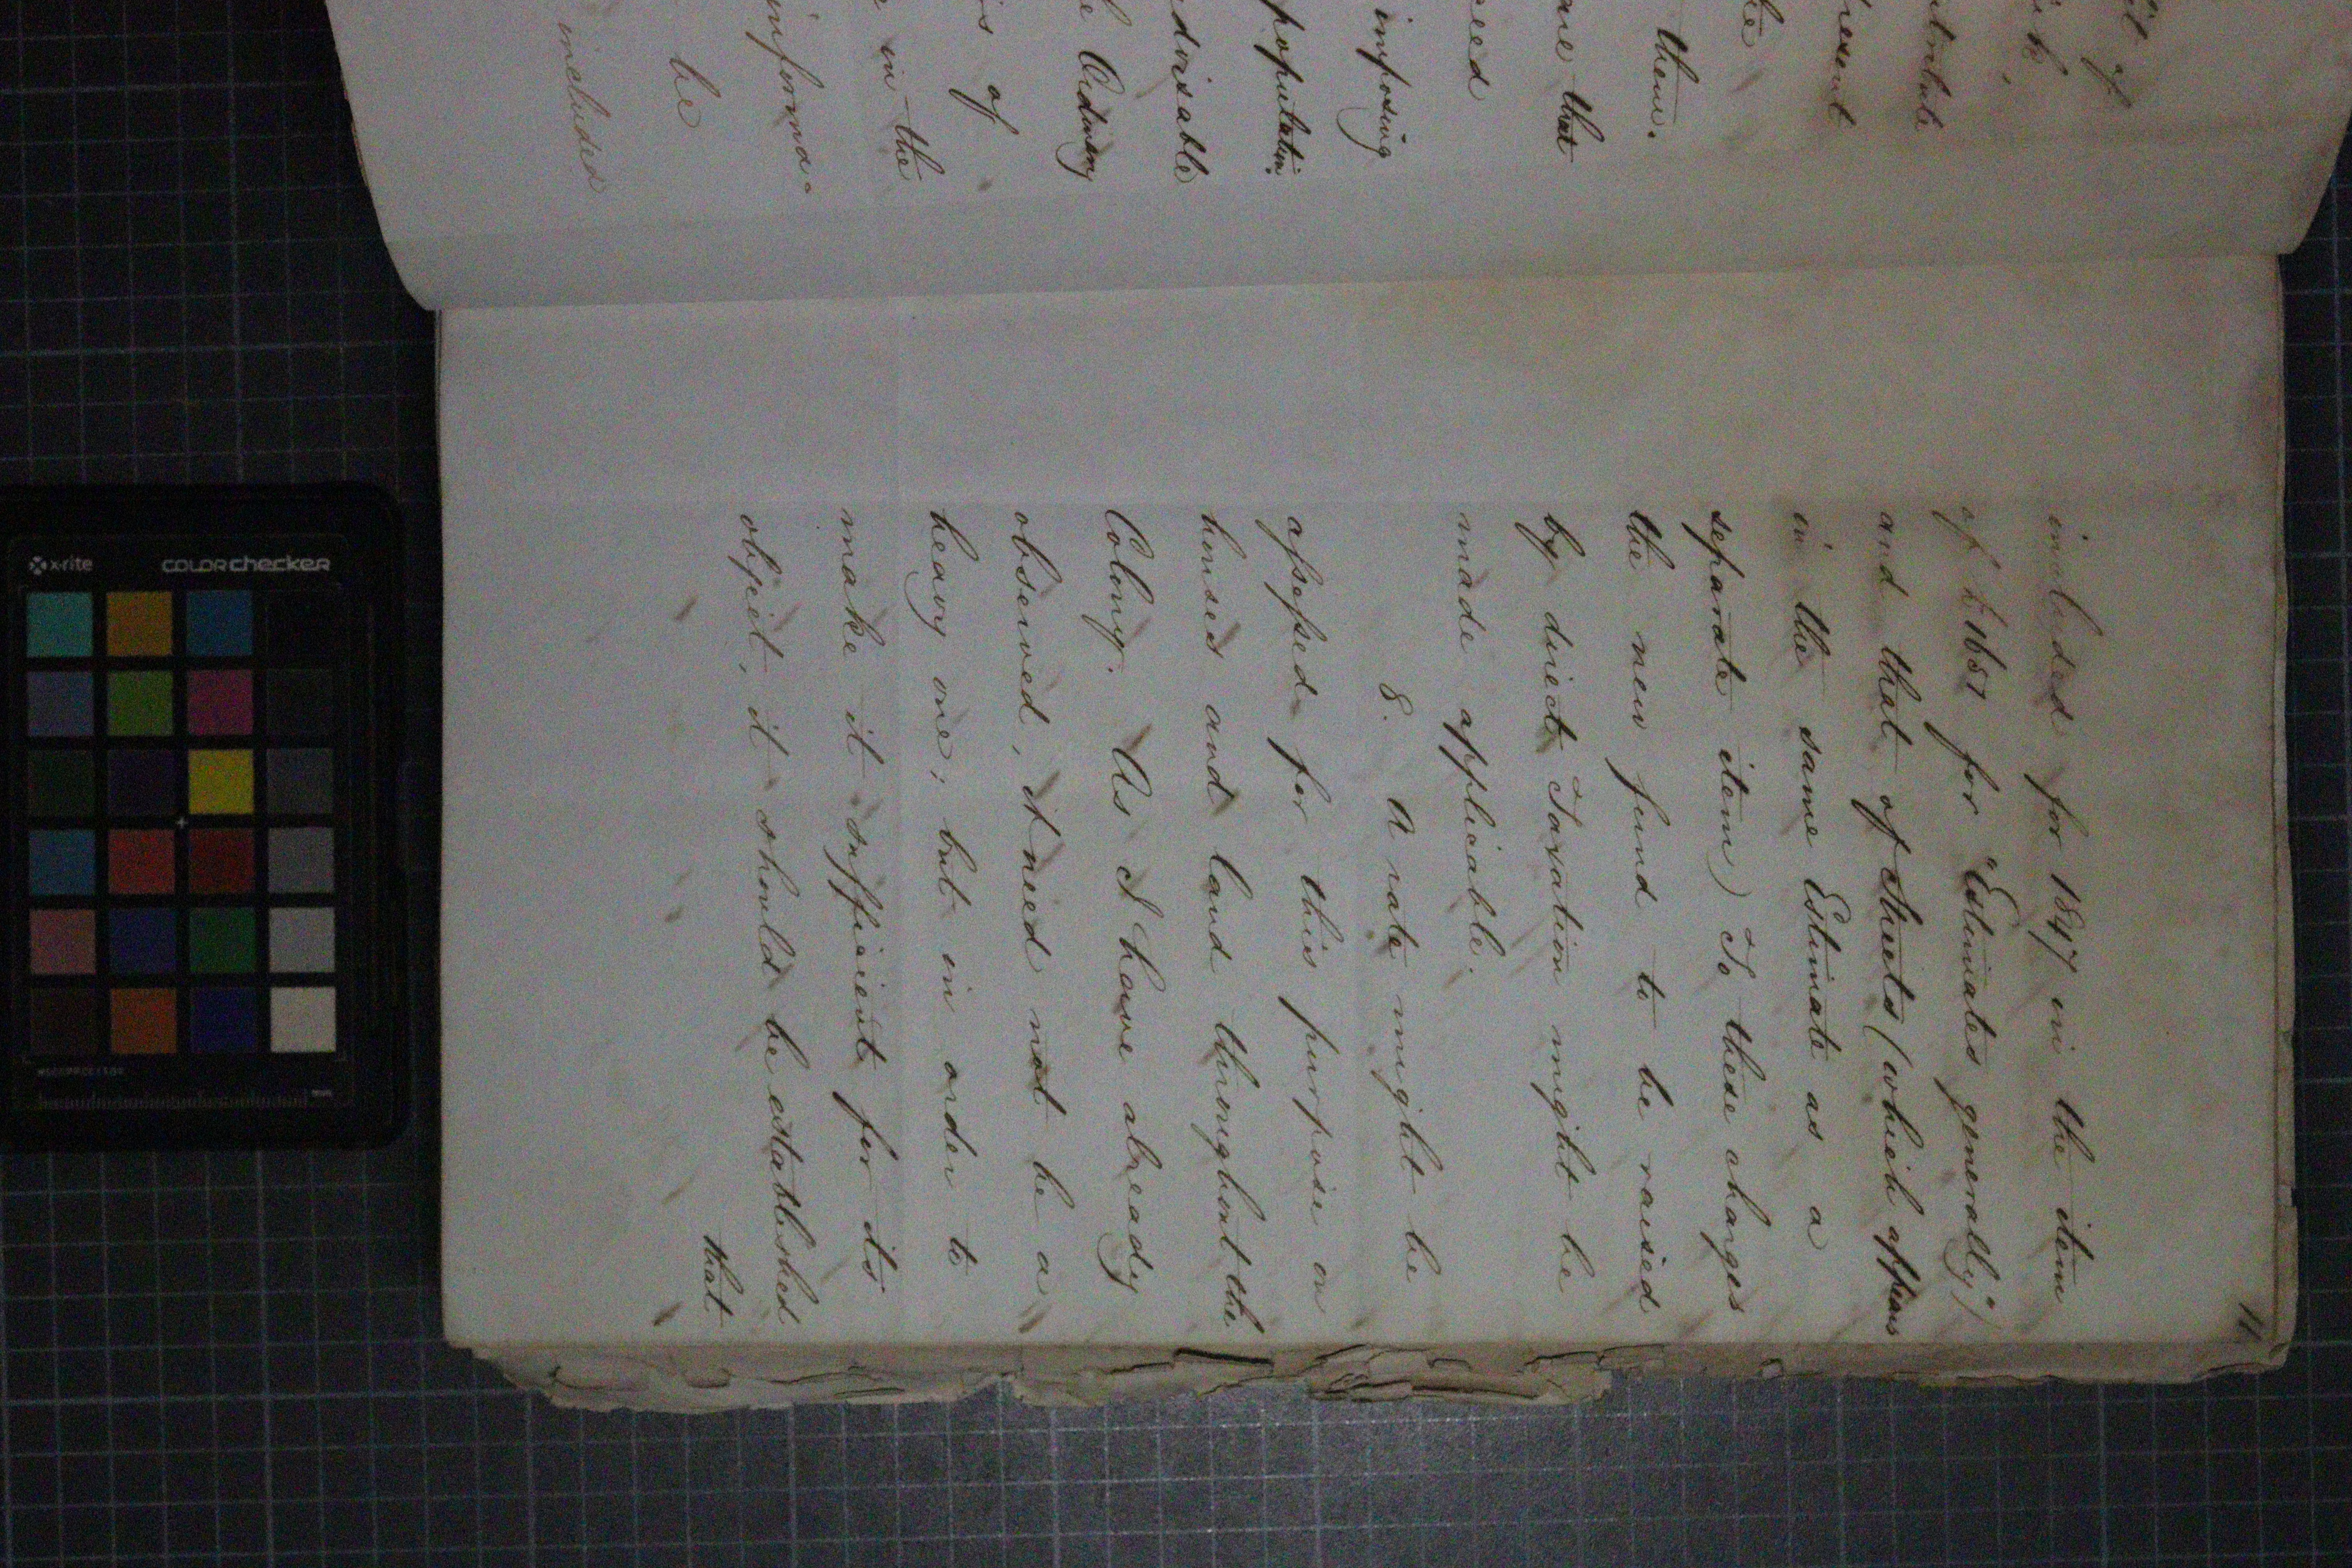 it of
them.
are that
imposing
population.
advisable
Ordinary
is of
in the
informa-
be
included
11
included for 1847 in the item
of £1657 for "Estimates generally")
and that of Streets (which appears
in the same Estimate as a
separate item) To these charges
the new fund to be raised
by direct Taxation might be
made applicable.
8. A rate might be
assessed for this purpose on
houses and land throughout the
Colony. As I have already
observed, it need not be a
heavy one; but in order to
make it sufficient for its
object, it should be established
that
x-rite
COLORchecker